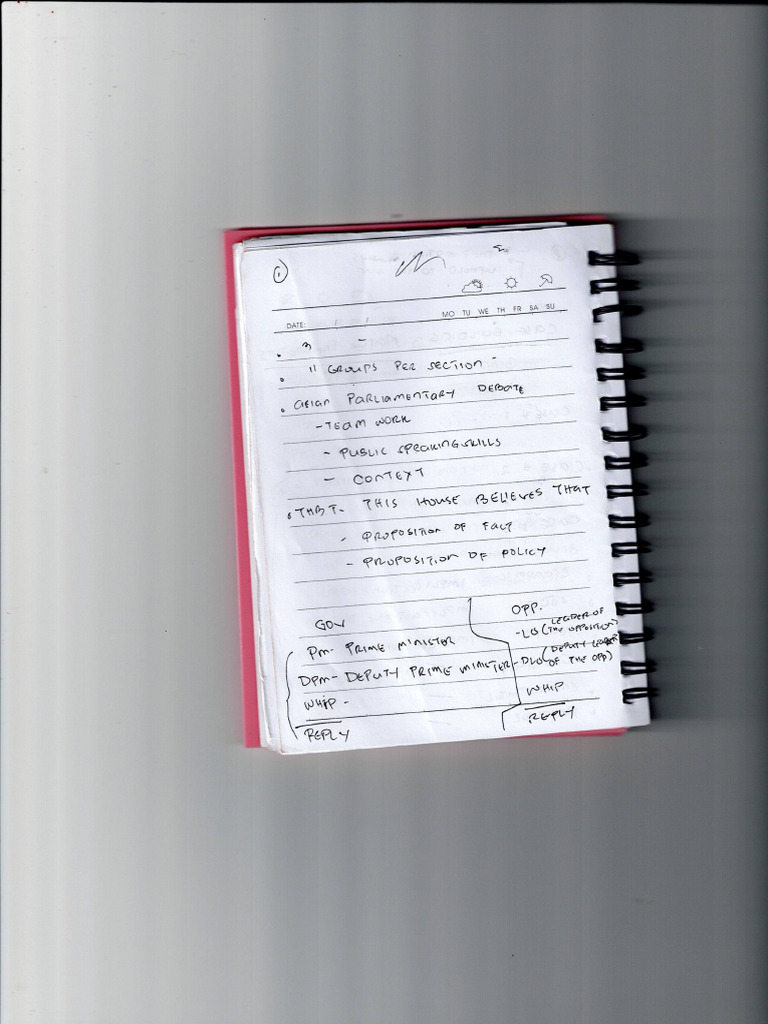 1
MO TU WE TH FR SA SU
DATE: / /
• 3 -
• 11 GROUPS PER SECTION -
• ASIAN PARLIAMENTARY DEBATE
- TEAM WORK
- PUBLIC SPEAKING SKILLS
- CONTEXT
• THBT - THIS HOUSE BELIEVES THAT
- PROPOSITION OF FACT
- PROPOSITION OF POLICY
GOV
PM - PRIME MINISTER
DPM - DEPUTY PRIME MINISTER
WHIP -
REPLY
OPP.
- LO (LEADER OF THE OPPOSITION)
- DLO (DEPUTY LEADER OF THE OPP)
WHIP
REPLY